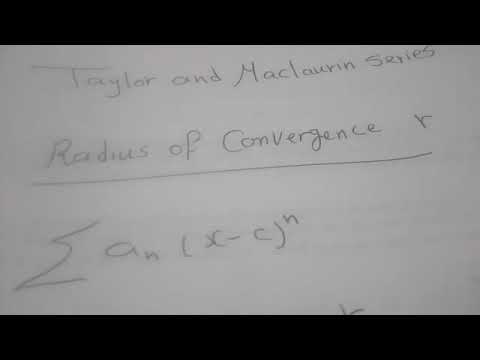 Taylor and Maclaurin series
Radius of Convergence r
∑ aₙ (x-c)ⁿ